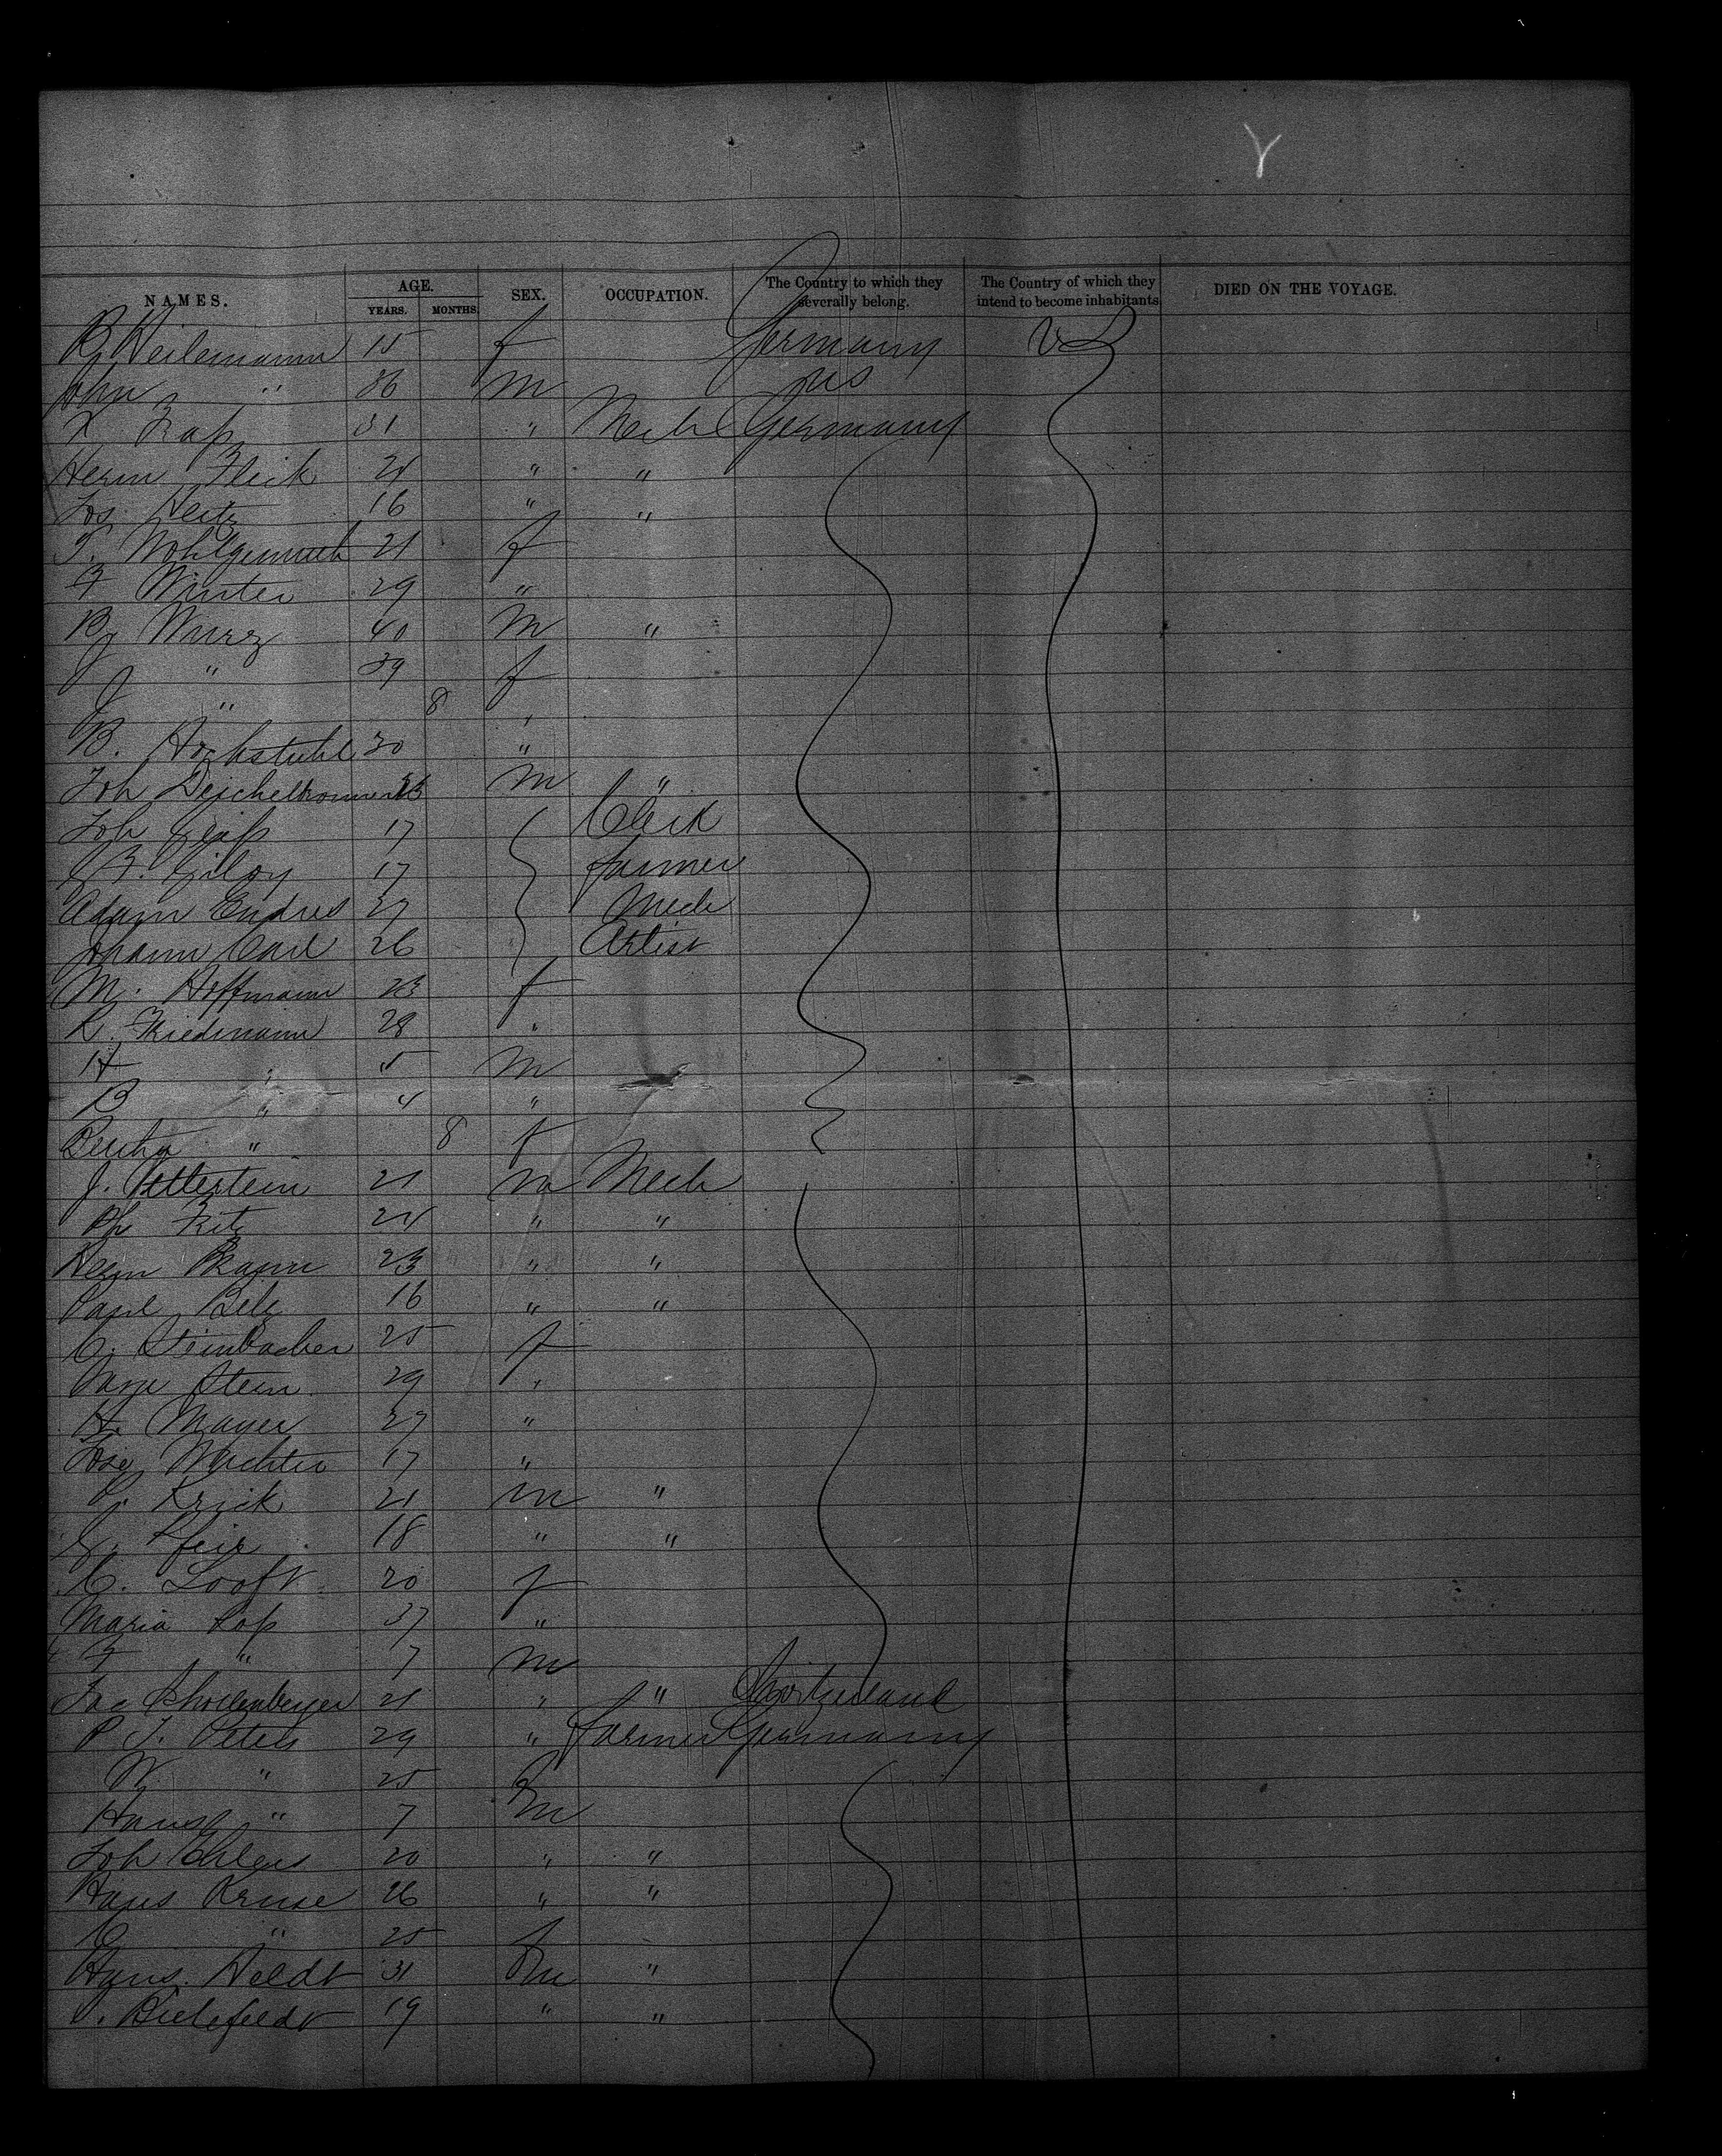 Y
NAMES. AGE. YEARS. MONTHS. SEX. OCCUPATION. The Country to which they severally belong. The Country of which they intend to become inhabitants. DIED ON THE VOYAGE.
R Heilemann 15 f Germany US
John " 36 m US
31 " Mech Germany
Herm Flick 24 " "
Jos. Heitz 16 " "
T. Wohlgemuth 21 f
F Winter 29 "
B Wurz 40 m "
J " 39 f
J " 8 "
B. Hochstuhl 30 "
Joh 23 m "
Joh 17 Clerk
17 farmer
Adam Endres 27 Mech
Johann Carl 26 Artist
M. Hoffmann 23 f
R. Friedmann 28 "
H " 5 m
B " 4 "
Bertha " 8 f
J. 21 m Mech
Ph Fritz 24 " "
Herm 23 " "
Paul Belz 16 " "
C. Steinbacher 25 f
Stein 29 "
H. Mayer 27 "
17 "
Krick 21 m "
18 " "
C. Looft 20 f
Maria 37 "
F " 7 m
Jac 21 " " Switzerland
P J. Peters 29 " farmer Germany
W. " 25 f
Hans " 7 m
Joh Ehlers 20 " "
Hans Kruse 26 " "
C " 25 f
Hans Heldt 31 m "
Bielefeldt 19 " "